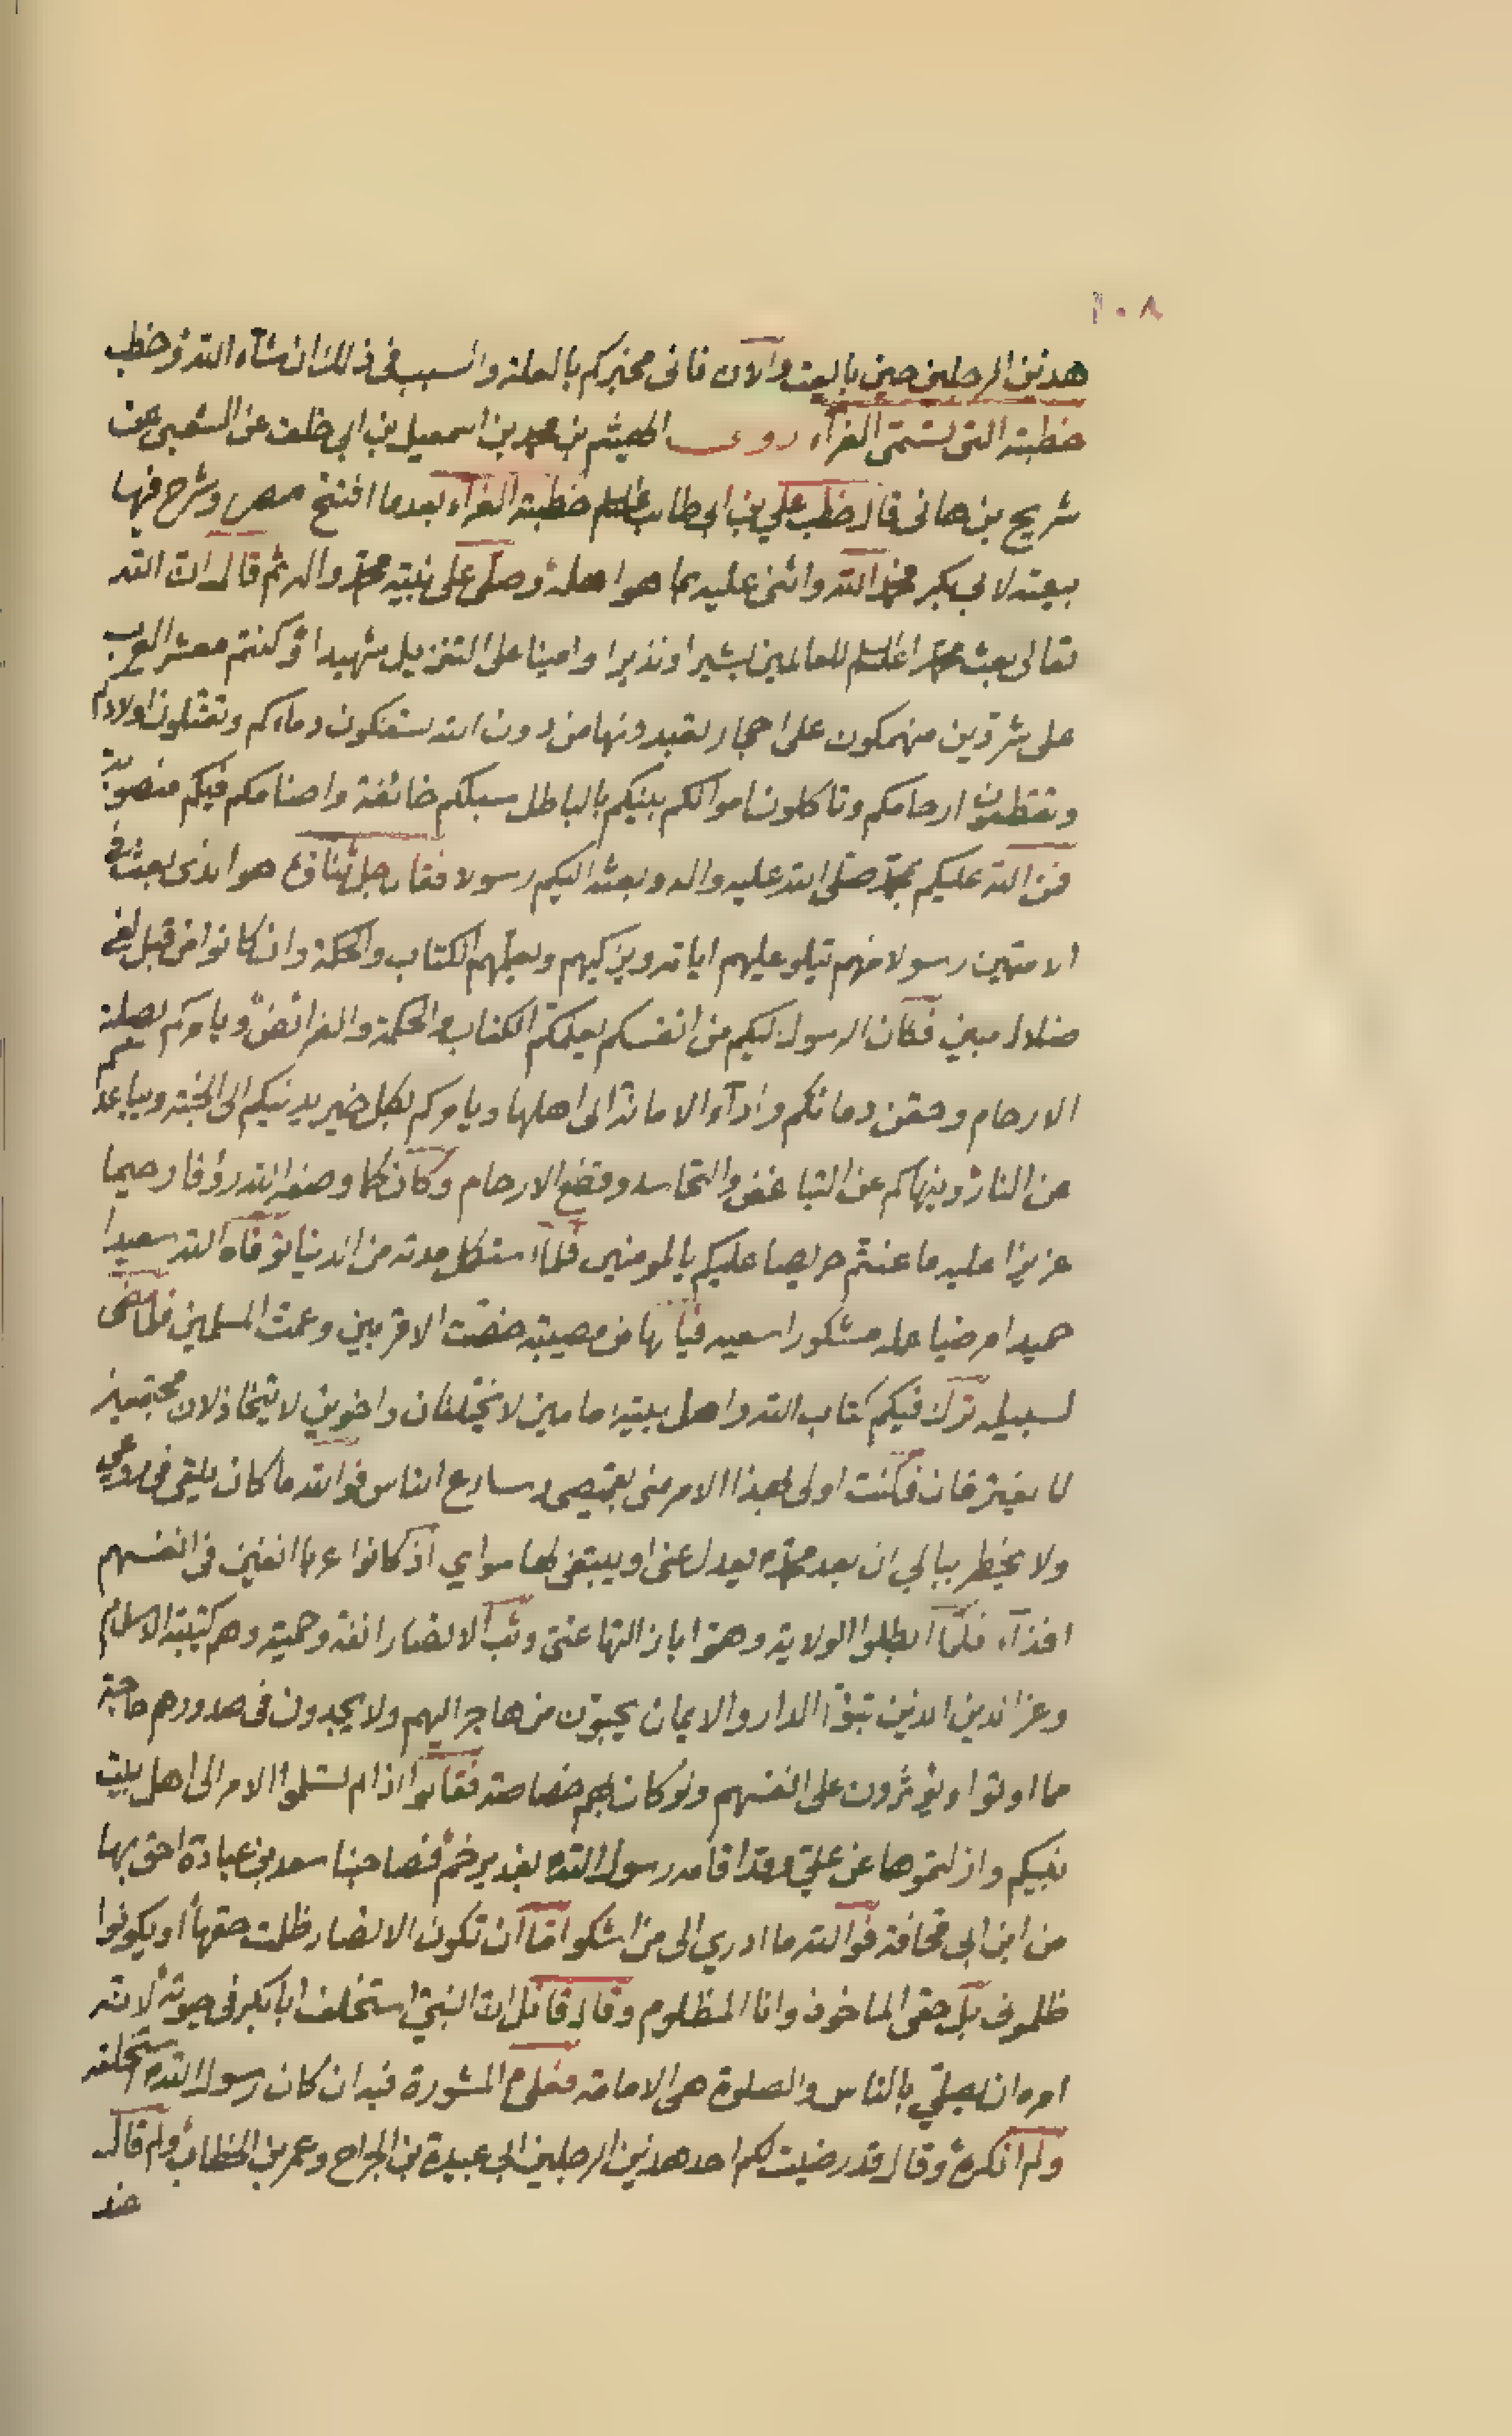 ١٠٨
هذين الرجلين حين بايعت والآن فانى مخبركم بالعلة والسبب فى ذلك ان شآء الله وخطب
خطبته التى تسمى الغرآء روى الهيثم بن محمد بن اسمعيل بن ابى خلف عن الشعبى عن
شريح بن هانى قال خطب على بن ابى طالب خطبته الغراء بعد ما افتتح مصر وشرح فيها
بيعته لابى بكر فحمد الله واثنى عليه بما هو اهله وصلى على نبيه محمد واله ثم قال ان الله
تعالى بعث محمدا للعالمين بشيرا ونذيرا وامينا على التنزيل شهيدا وكنتم معشر العرب
على شر دين منهمكون على احجار تعبدونها من دون الله تسفكون دماءكم وتقتلون اولادكم
وتقطعون ارحامكم وتاكلون اموالكم بينكم بالباطل سبلكم خائفة واصنامكم فيكم منصوبة
فمن الله عليكم بمحمد صلى الله عليه واله وبعثه اليكم رسولا فقال جل ثناؤه هو الذى بعث فى
الاميين رسولا منهم يتلو عليهم اياته ويزكيهم ويعلمهم الكتاب والحكمة وان كانوا من قبل لفى
ضلال مبين فكان الرسول اليكم من انفسكم يعلمكم الكتاب والحكمة والفرائض ويامركم بصلة
الارحام وحقن دمائكم وادآء الامانة الى اهلها ويامركم بكل خير يدنيكم الى الجنة ويباعدكم
عن النار وينهاكم عن التباغض والتحاسد وقطع الارحام وكان كما وصفه الله رؤفا رحيما
عزيزا عليه ما عنتم حريصا عليكم بالمومنين فلما استكمل مدته من الدنيا توفاه الله سعيدا
حميدا مرضيا عمله مشكورا سعيه فيا لها من مصيبة خصت الاقربين وعمت المسلمين فلما مضى
لسبيله ترك فيكم كتاب الله واهل بيته امامين لا يختلفان واخوين لا يتخاذلان مجتمعين
لا يفترقان فكنت اولى بهذا الامر منى بقميصى وسارع الناس فوالله ما كان يلقى فى روعى
ولا يخطر ببالي ان بعد محمد يعدل عنى او يبتغى لها سواي اذ كانوا فى انفسهم
فلما ابطلوا الولاية وهموا بازالتها عنى وثب الانصار انفة وحمية وهم كتيبة الاسلام
وعز الدين الذين تبوؤا الدار والايمان يحبون من هاجر اليهم ولا يجدون فى صدورهم حاجة
مما اوتوا ويؤثرون على انفسهم ولو كان بهم خصاصة فقالوا اذ لم تسلموا الامر الى اهل بيت
نبيكم وازلتموها عن على وقد اقامه رسول الله بغدير خم فصاحبنا سعد بن عبادة احق بها
من ابن ابى قحافة فوالله ما ادري الى من اشكو اما ان تكون الانصار ظلمت حقها او يكونوا
ظلمونى بل حقى الماخوذ وانا المظلوم وقال قائل ان النبي استخلف ابا بكر فى حيوته لانه
امره ان يصلي بالناس والصلوة هى الامامة فعلام المشورة فيه ان كان رسول الله استخلفه
ولم انكره وقال قد رضيت لكم احد هذين الرجلين ابى عبيدة بن الجراح وعمر بن الخطاب ولم قال